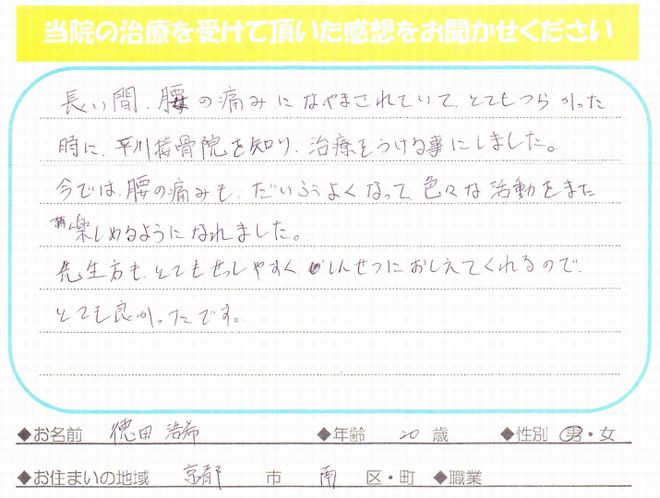 当院の治療を受けて頂いた感想をお聞かせください
長い間、腰の痛みになやまされていて、とてもつらかった
時に、平川接骨院を知り、治療をうける事にしました。
今では、腰の痛みも、だいぶよくなって、色々な活動をまた
楽しめるようになれました。
先生方も、とてもせっしやすく、しんせつにおしえてくれるので、
とても良かったです。
◆お名前 徳田 浩希 ◆年齢 20 歳 ◆性別 男・女
◆お住まいの地域 京都 市 南 区・町 ◆職業